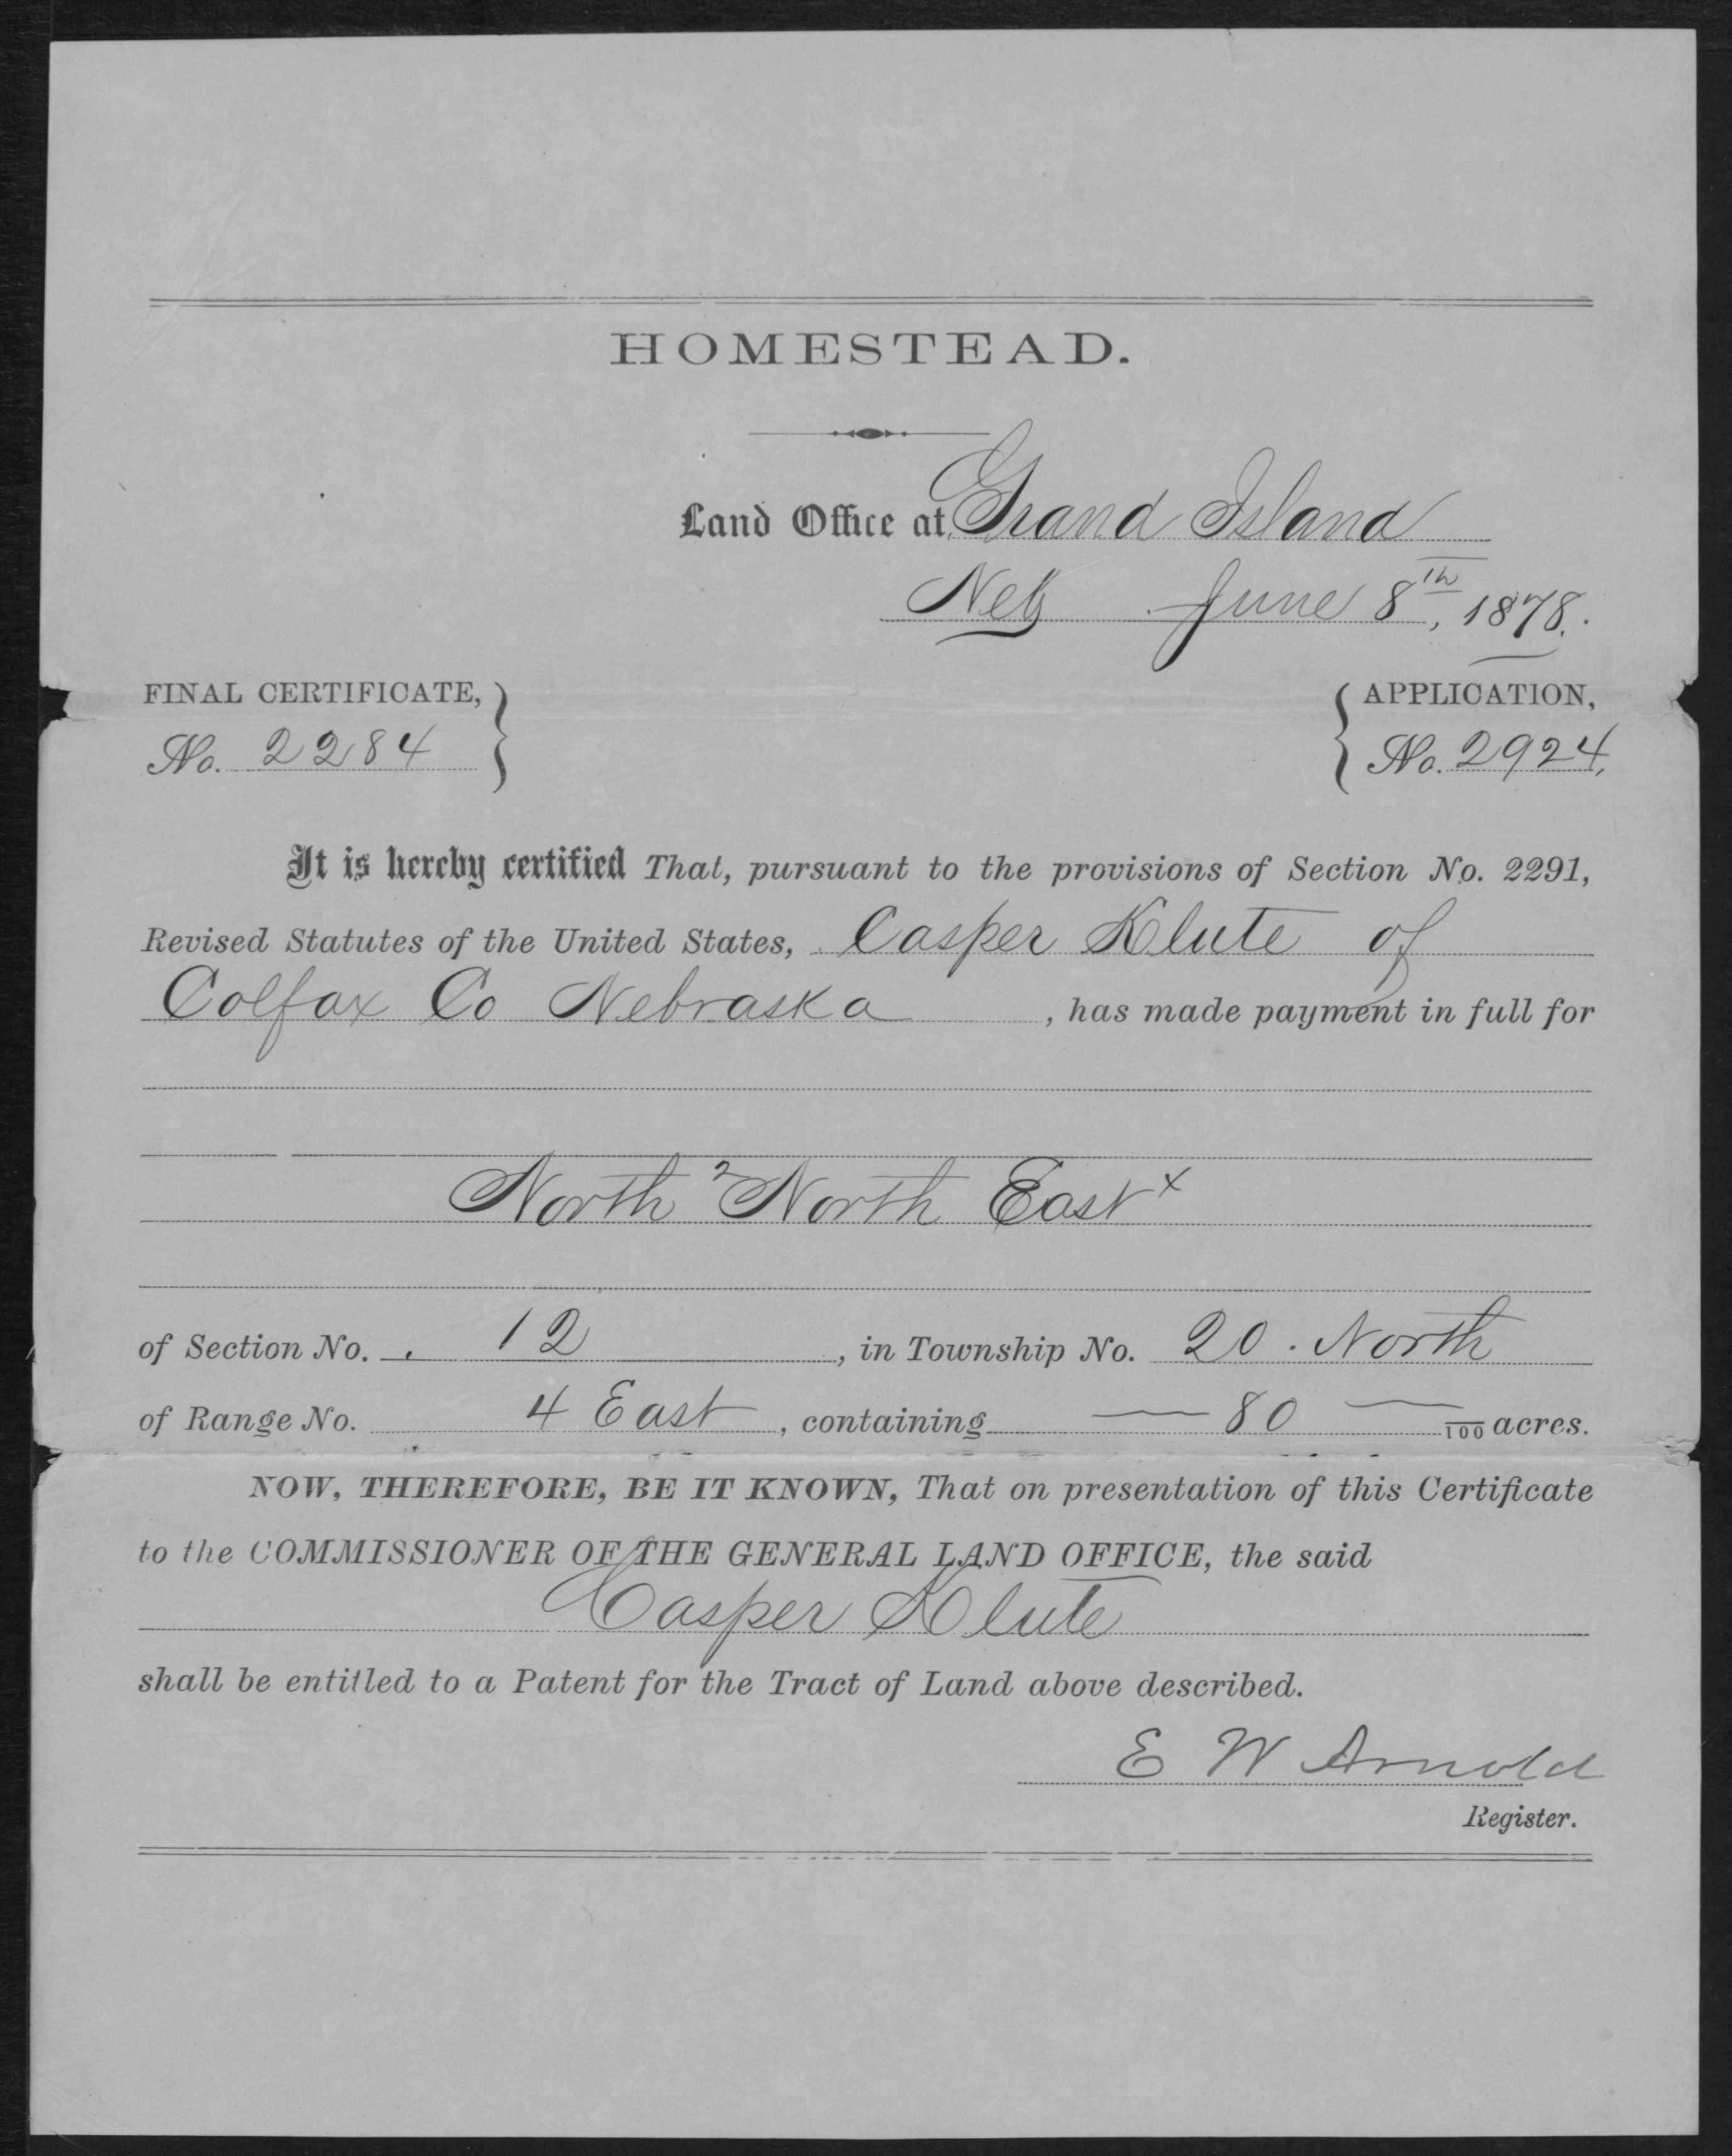 HOMESTEAD.
Land Office at Grand Island
Neb June 8th, 1878.
FINAL CERTIFICATE,
No. 2284
APPLICATION,
No. 2924,
It is hereby certified That, pursuant to the provisions of Section No. 2291,
Revised Statutes of the United States, Casper Klute of
Colfax Co Nebraska, has made payment in full for
North 2 North East x
of Section No. 12, in Township No. 20. North
of Range No. 4 East, containing — 80 — /100 acres.
NOW, THEREFORE, BE IT KNOWN, That on presentation of this Certificate
to the COMMISSIONER OF THE GENERAL LAND OFFICE, the said
Casper Klute
shall be entitled to a Patent for the Tract of Land above described.
E W Arnold
Register.